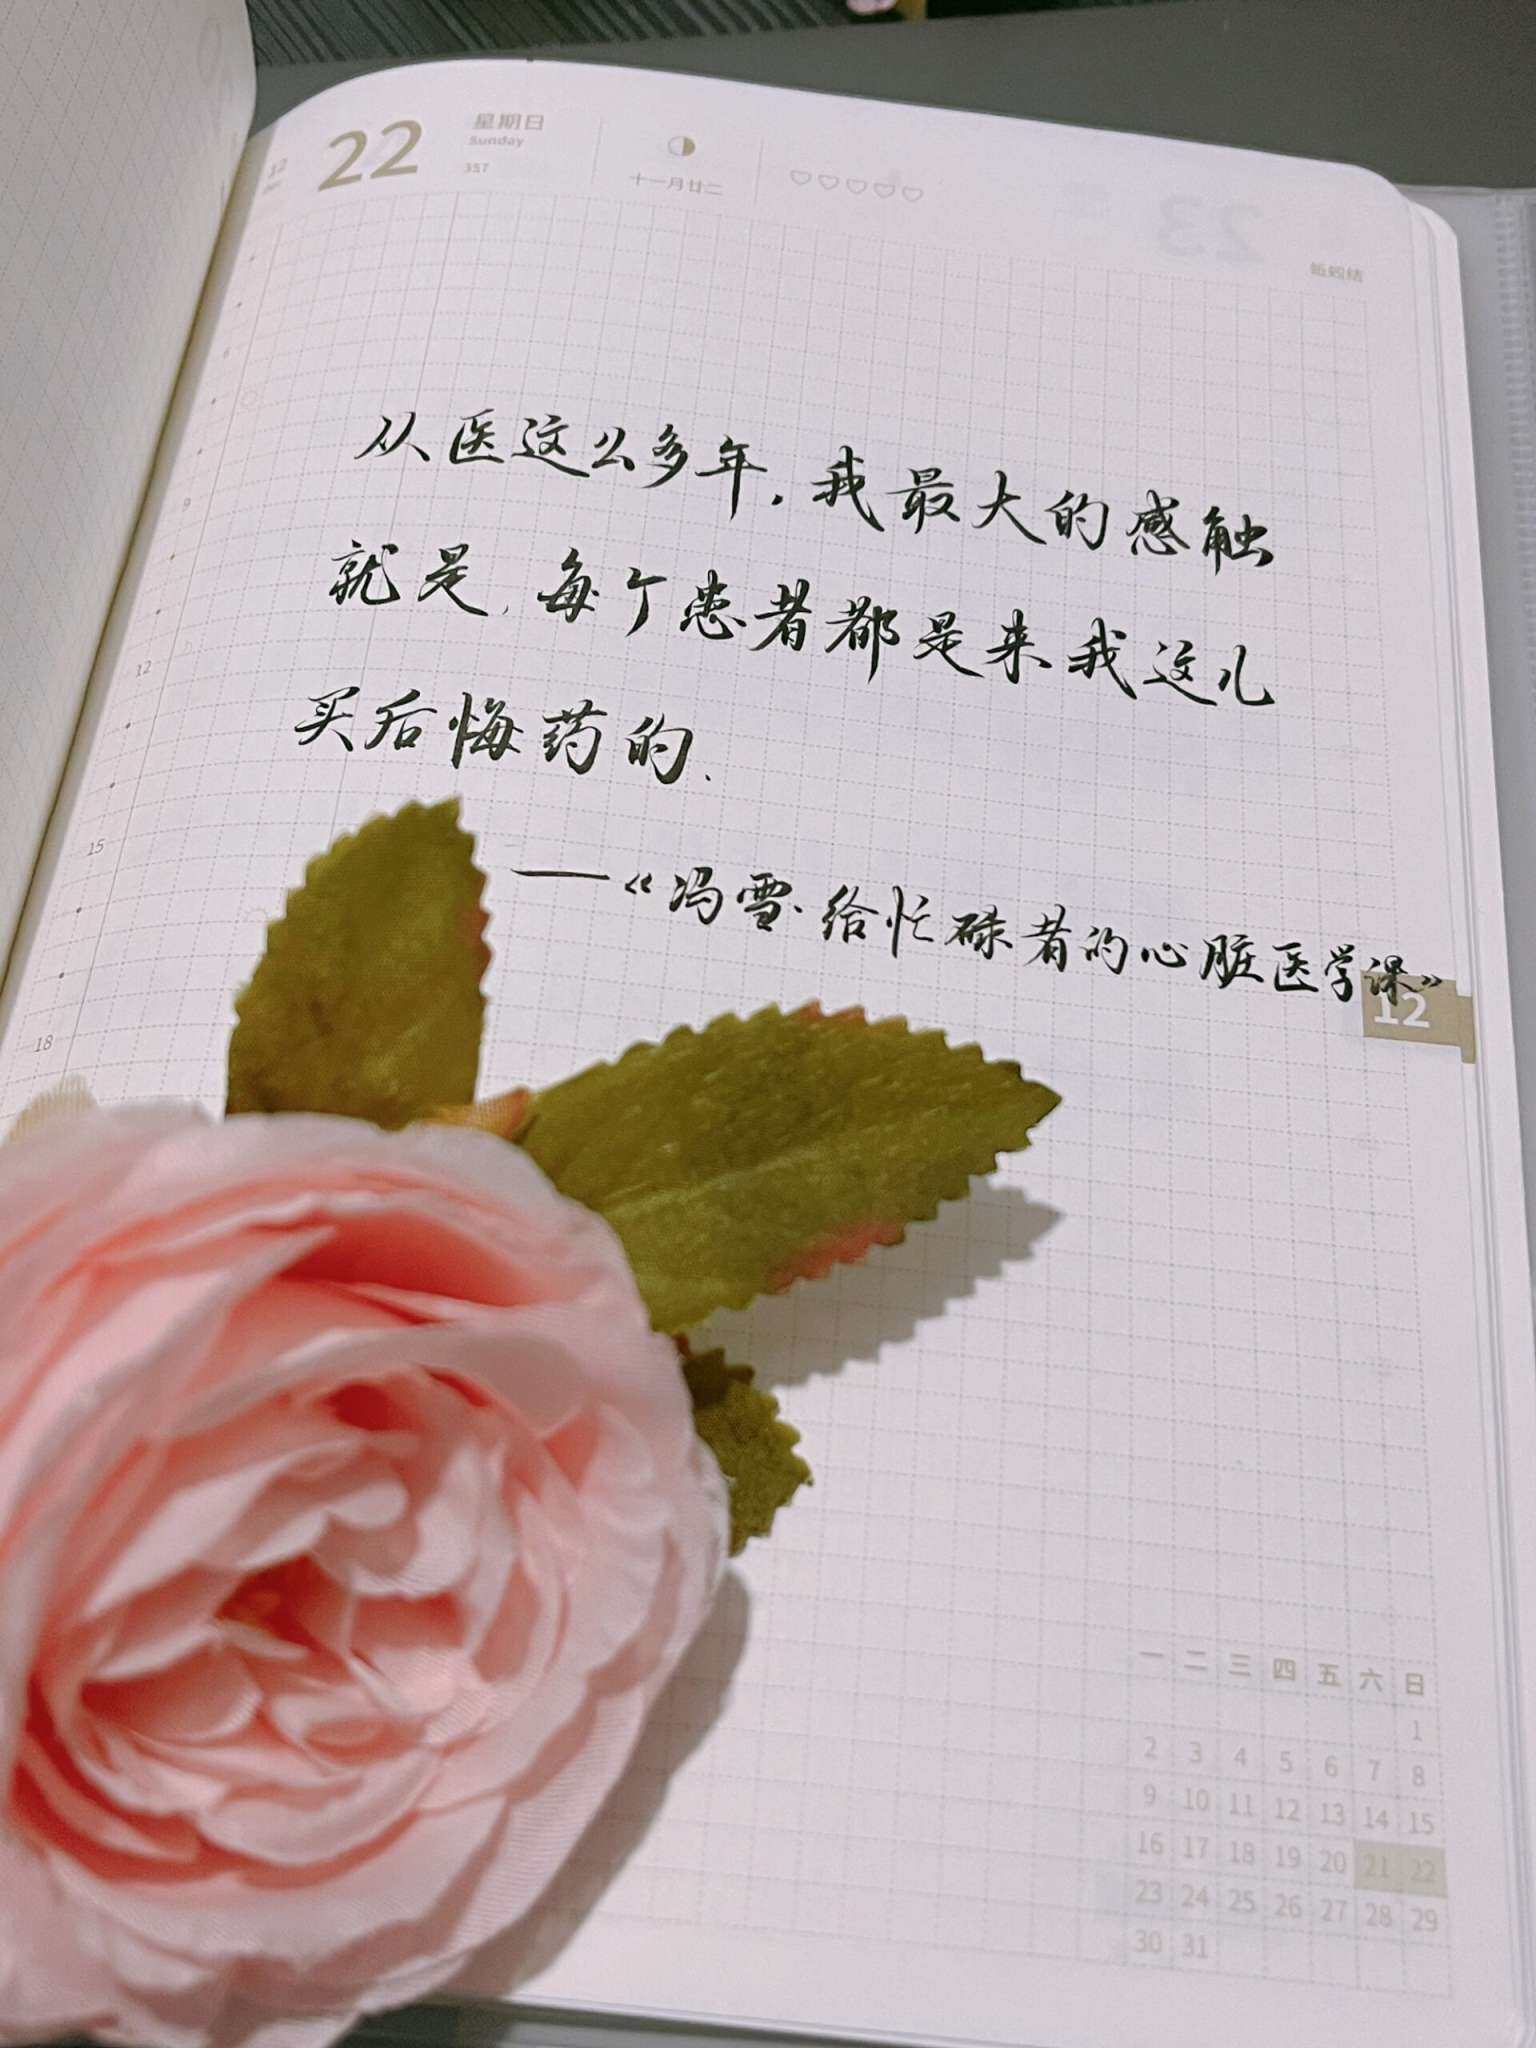 12
22
星期日
Sunday
357
十一月廿二
23
蚯蚓结
6
9
12
15
18
从医这么多年，我最大的感触
就是，每个患者都是来我这儿
买后悔药的.
——《冯雪·给忙碌者的心脏医学课》
12
一 二 三 四 五 六 日
1
2 3 4 5 6 7 8
9 10 11 12 13 14 15
16 17 18 19 20 21 22
23 24 25 26 27 28 29
30 31